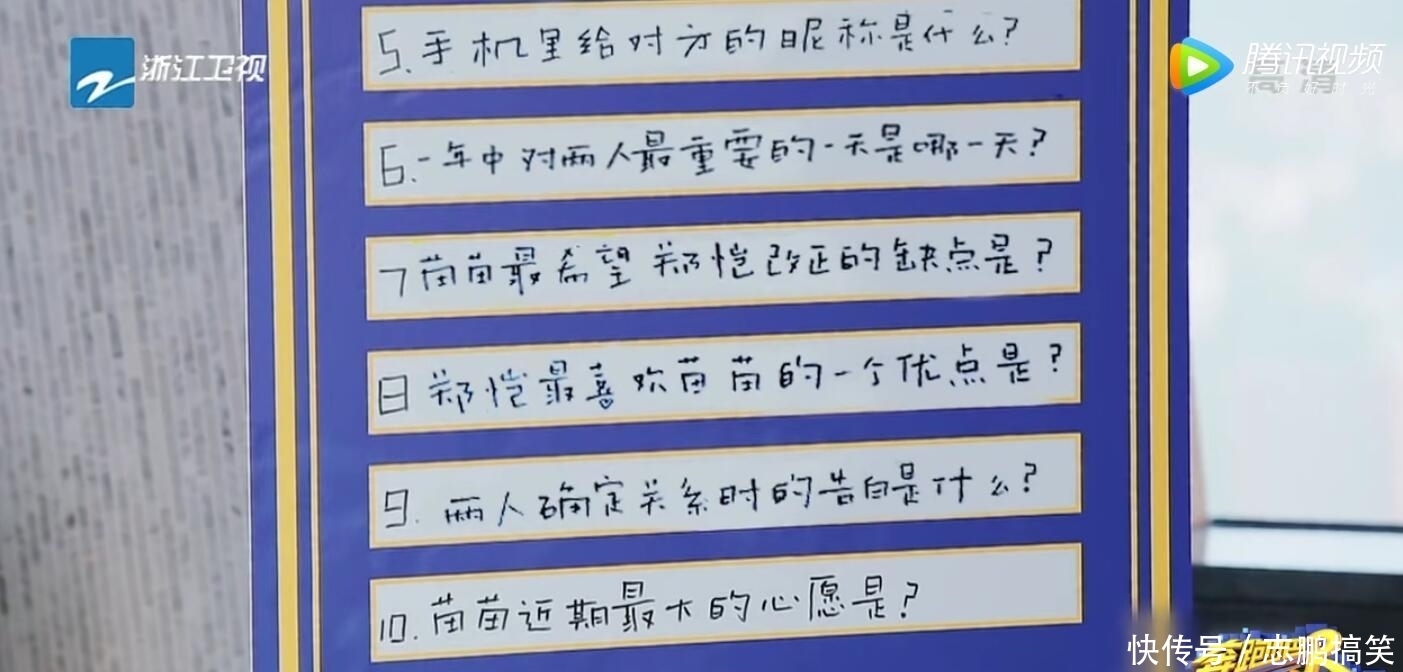 浙江卫视
腾讯视频
不负好时光
5.手机里给对方的昵称是什么?
6.一年中对两人最重要的一天是哪一天?
7苗苗最希望郑恺改正的缺点是?
8郑恺最喜欢苗苗的一个优点是?
9.两人确定关系时的告白是什么?
10.苗苗近期最大的心愿是?
快传号/志鹏搞笑